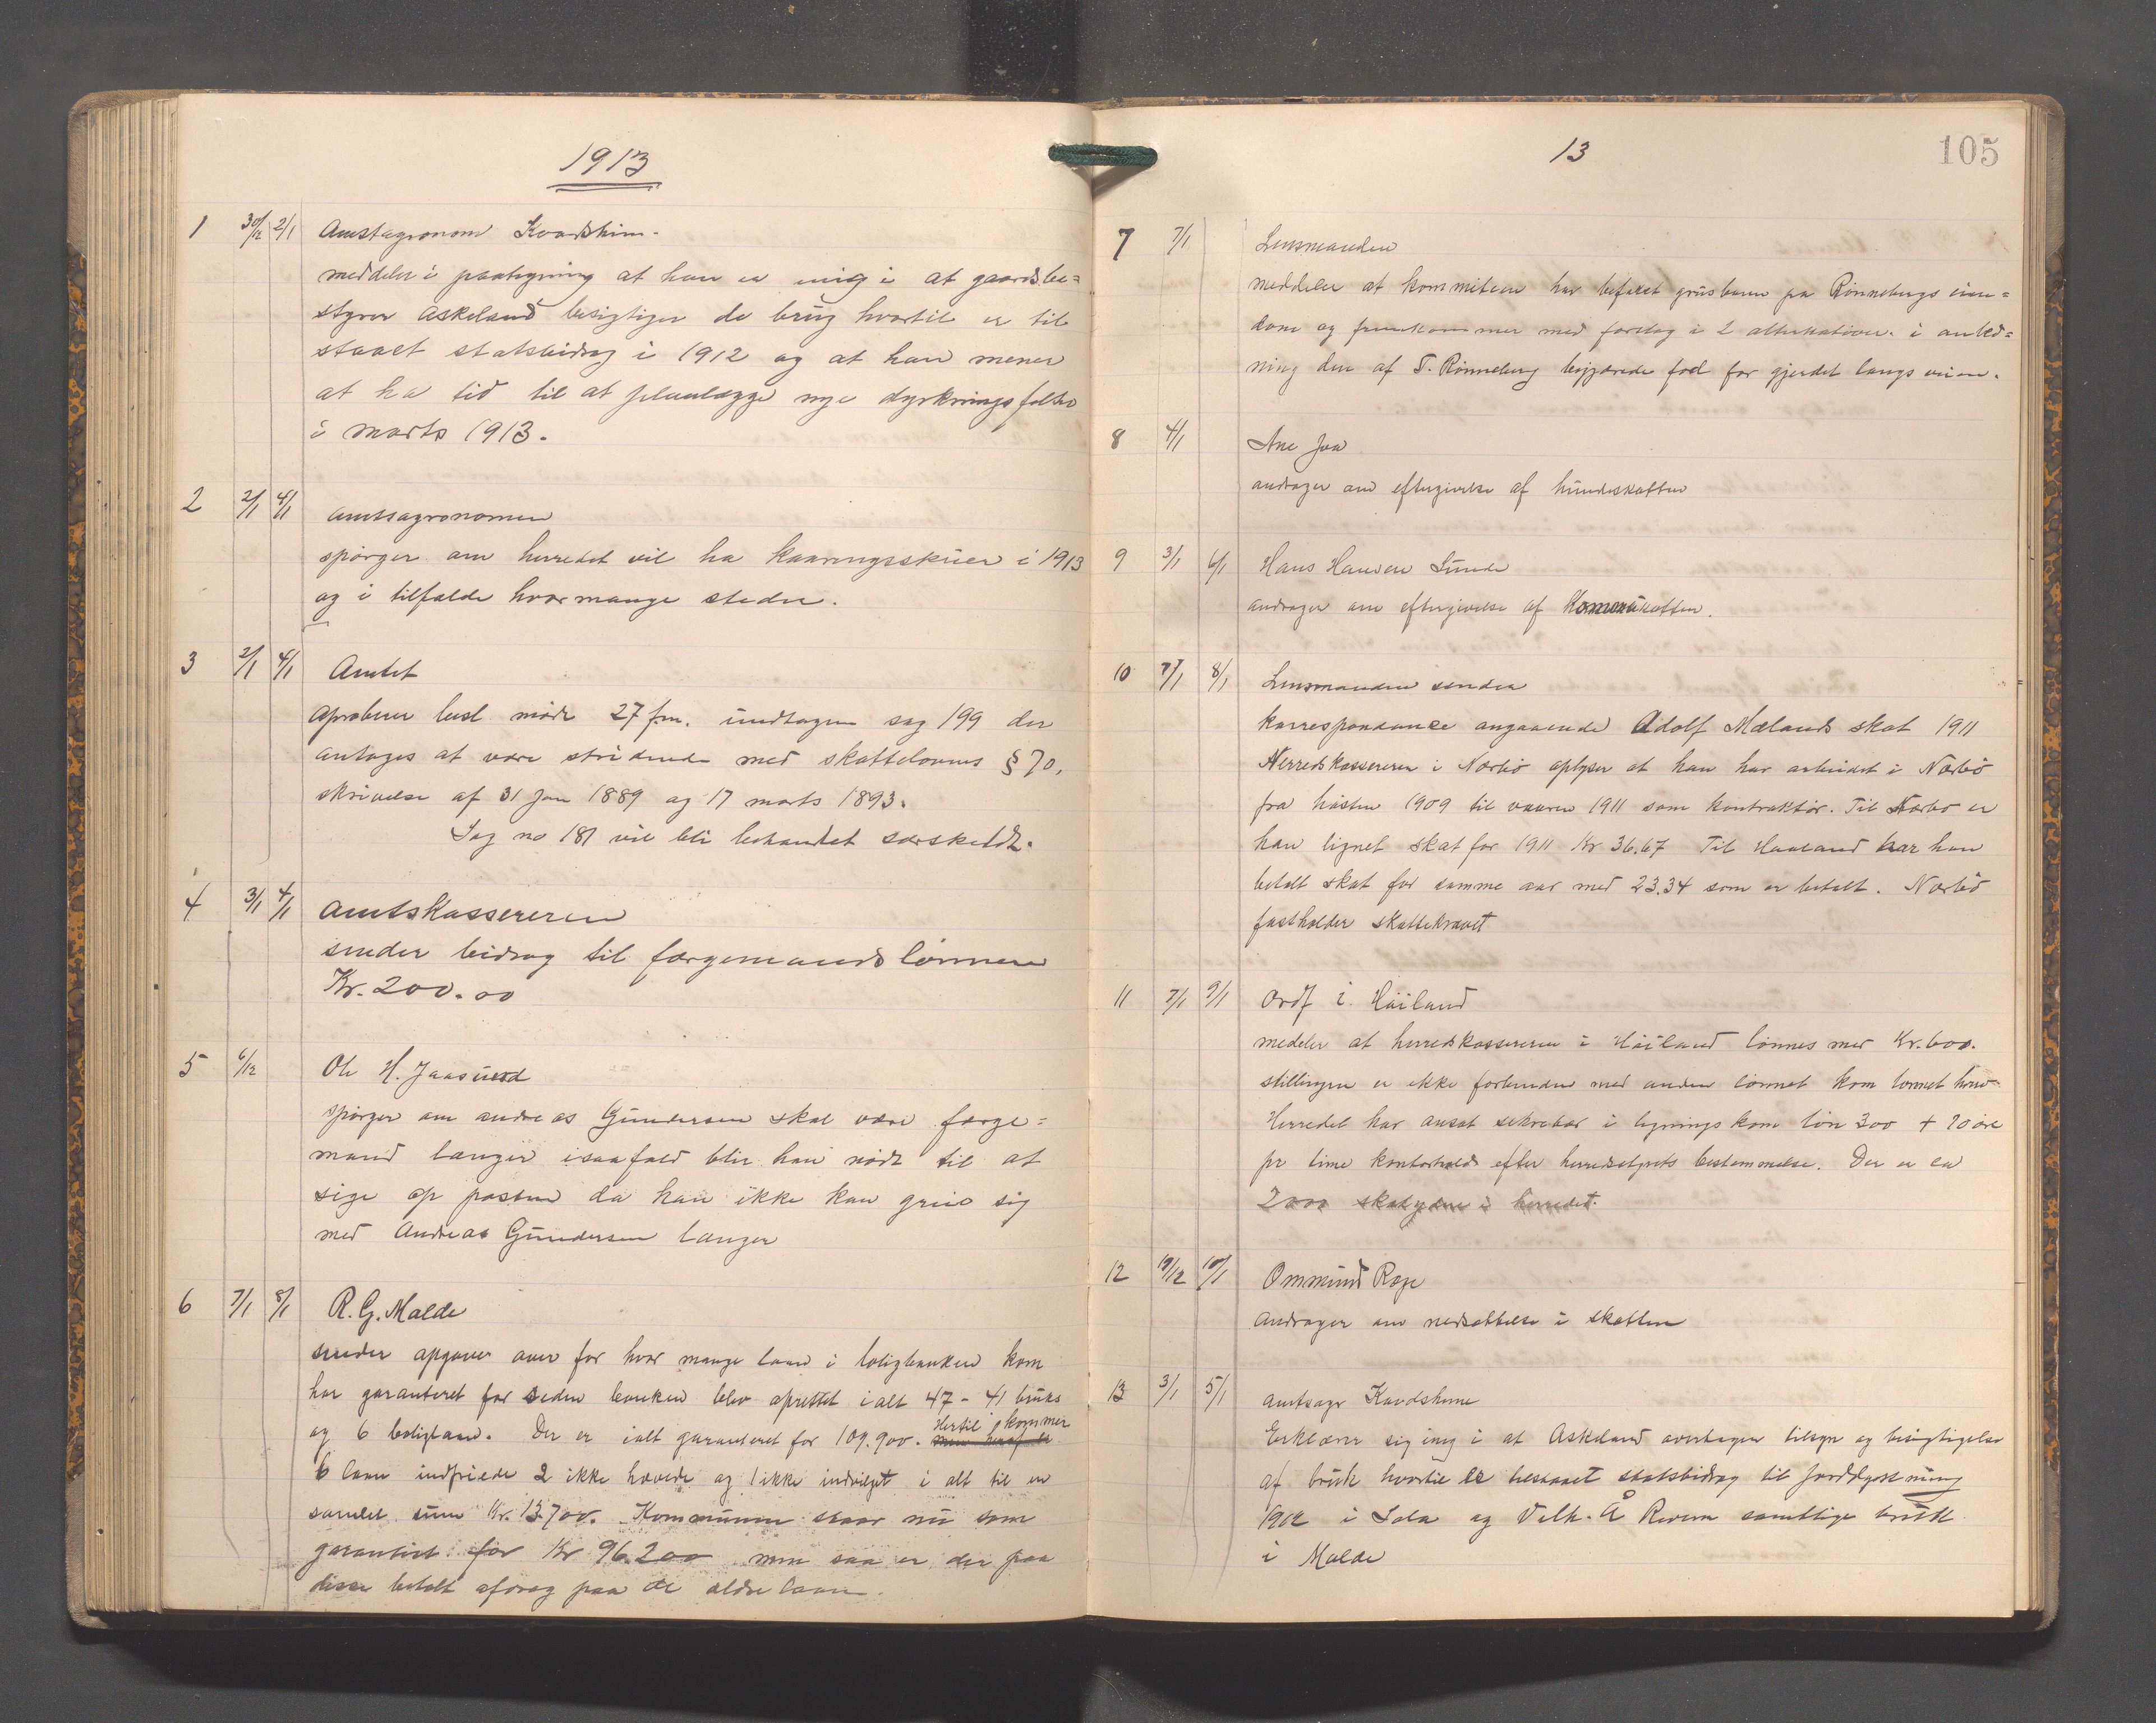 1913
1 30/12 2/1 Amtsagronom Kvadshim.
meddeler i paategning at han er enig i at gaardsbe=
styrer Askeland besigtiger de brug hvortil er til
staaet statsbidrag i 1912 og at han mener
at ha tid til at planlægge nye dyrkningsfelter
i marts 1913.
2 2/1 4/1 Amtsagronomen
spørger om herredet vil ha kaaringsskuer i 1913
og i tilfælde hvor mange steder.
3 2/1 4/1 Amtet
Aproberer besl møde 27 fm. undtagen sag 199 der
antages at være stridende med skattelovens § 70,
skrivelse af 31 Jan 1889 og 17 marts 1893.
Sag no 181 vil bli behandlet særskildt.
4 3/1 4/1 Amtskassereren
sender bidrag til færgemandslønnen
Kr. 200.00
5 6/12 Ole H. Jaasund
spørger om Andreas Gundersen skal være færge=
mand længer isaafald blir han nødt til at
sige op posten da han ikke kan greie sig
med Andreas Gundersen længer
6 7/1 8/1 R. G. Malde
sender opgaver over for hvor mange laan i boligbanken kom
har garanteret for siden banken blev oprettet i alt 47 - 41 bruks
og 6 boliglaan. Der er ialt garanteret for 109.900. Hertil kommer
6 laan indfriede 2 ikke hævede og 1 ikke indvilget i alt til en
samlet sum Kr. 13.700. Kommunen staar nu som
garantist for Kr 96.200 men saa er der paa
disse betalt afdrag paa de ældre laan.
13
105
7 7/1 Lensmanden
meddeler at kommiteen har befaret grusbanen pa Rønnebergs eien=
dom og fremkommer med forslag i 2 alternativer. i anled=
ning den af T. Rønneberg begjærede fod for gjerdet langs veien.
8 4/1 Ane Joa
andrager om eftergivelse af hundeskatten
9 3/1 6/1 Hans Hansen Sunde
andrager om eftergivelse af Komuneskatten.
10 7/1 8/1 Lensmanden sender
korrespondance angaaende Adolf Mælands skat 1911
Herredskassereren i Nærbø oplyser at han har arbeidet i Nærbø
fra høsten 1909 til vaaren 1911 som kontraktør. Til Nærbø er
han lignet skat for 1911 Kr 36.67 Til Haaland har han
betalt skat for samme aar med 23.34 som er betalt. Nærbø
fastholder skattekravet
11 7/1 9/1 Ordf i Høiland
medeler at herredskassereren i Høiland lønnes med Kr. 600.
stillingen er ikke forbunden med anden lønnet kom lønnet
Herredet har ansat sekretær i ligningskom løn 300 + 70 øre
pr time kontorhold efter herredstyrets bestemmelse. Der er ca
2000 skatydere i herredet.
12 19/12 10/1 Ommund Rege
andrager om nedsættelse i skatten
13 3/1 5/1 Amtsagr Kvadsheim
Erklærer sig enig i at Askeland overtager tilsyn og besigtigelse
af bruk hvortil er tilstaaet statsbidrag til jorddyrkning
1912 i Sola og Valh. Å Revem samtlige bruk
i Malde